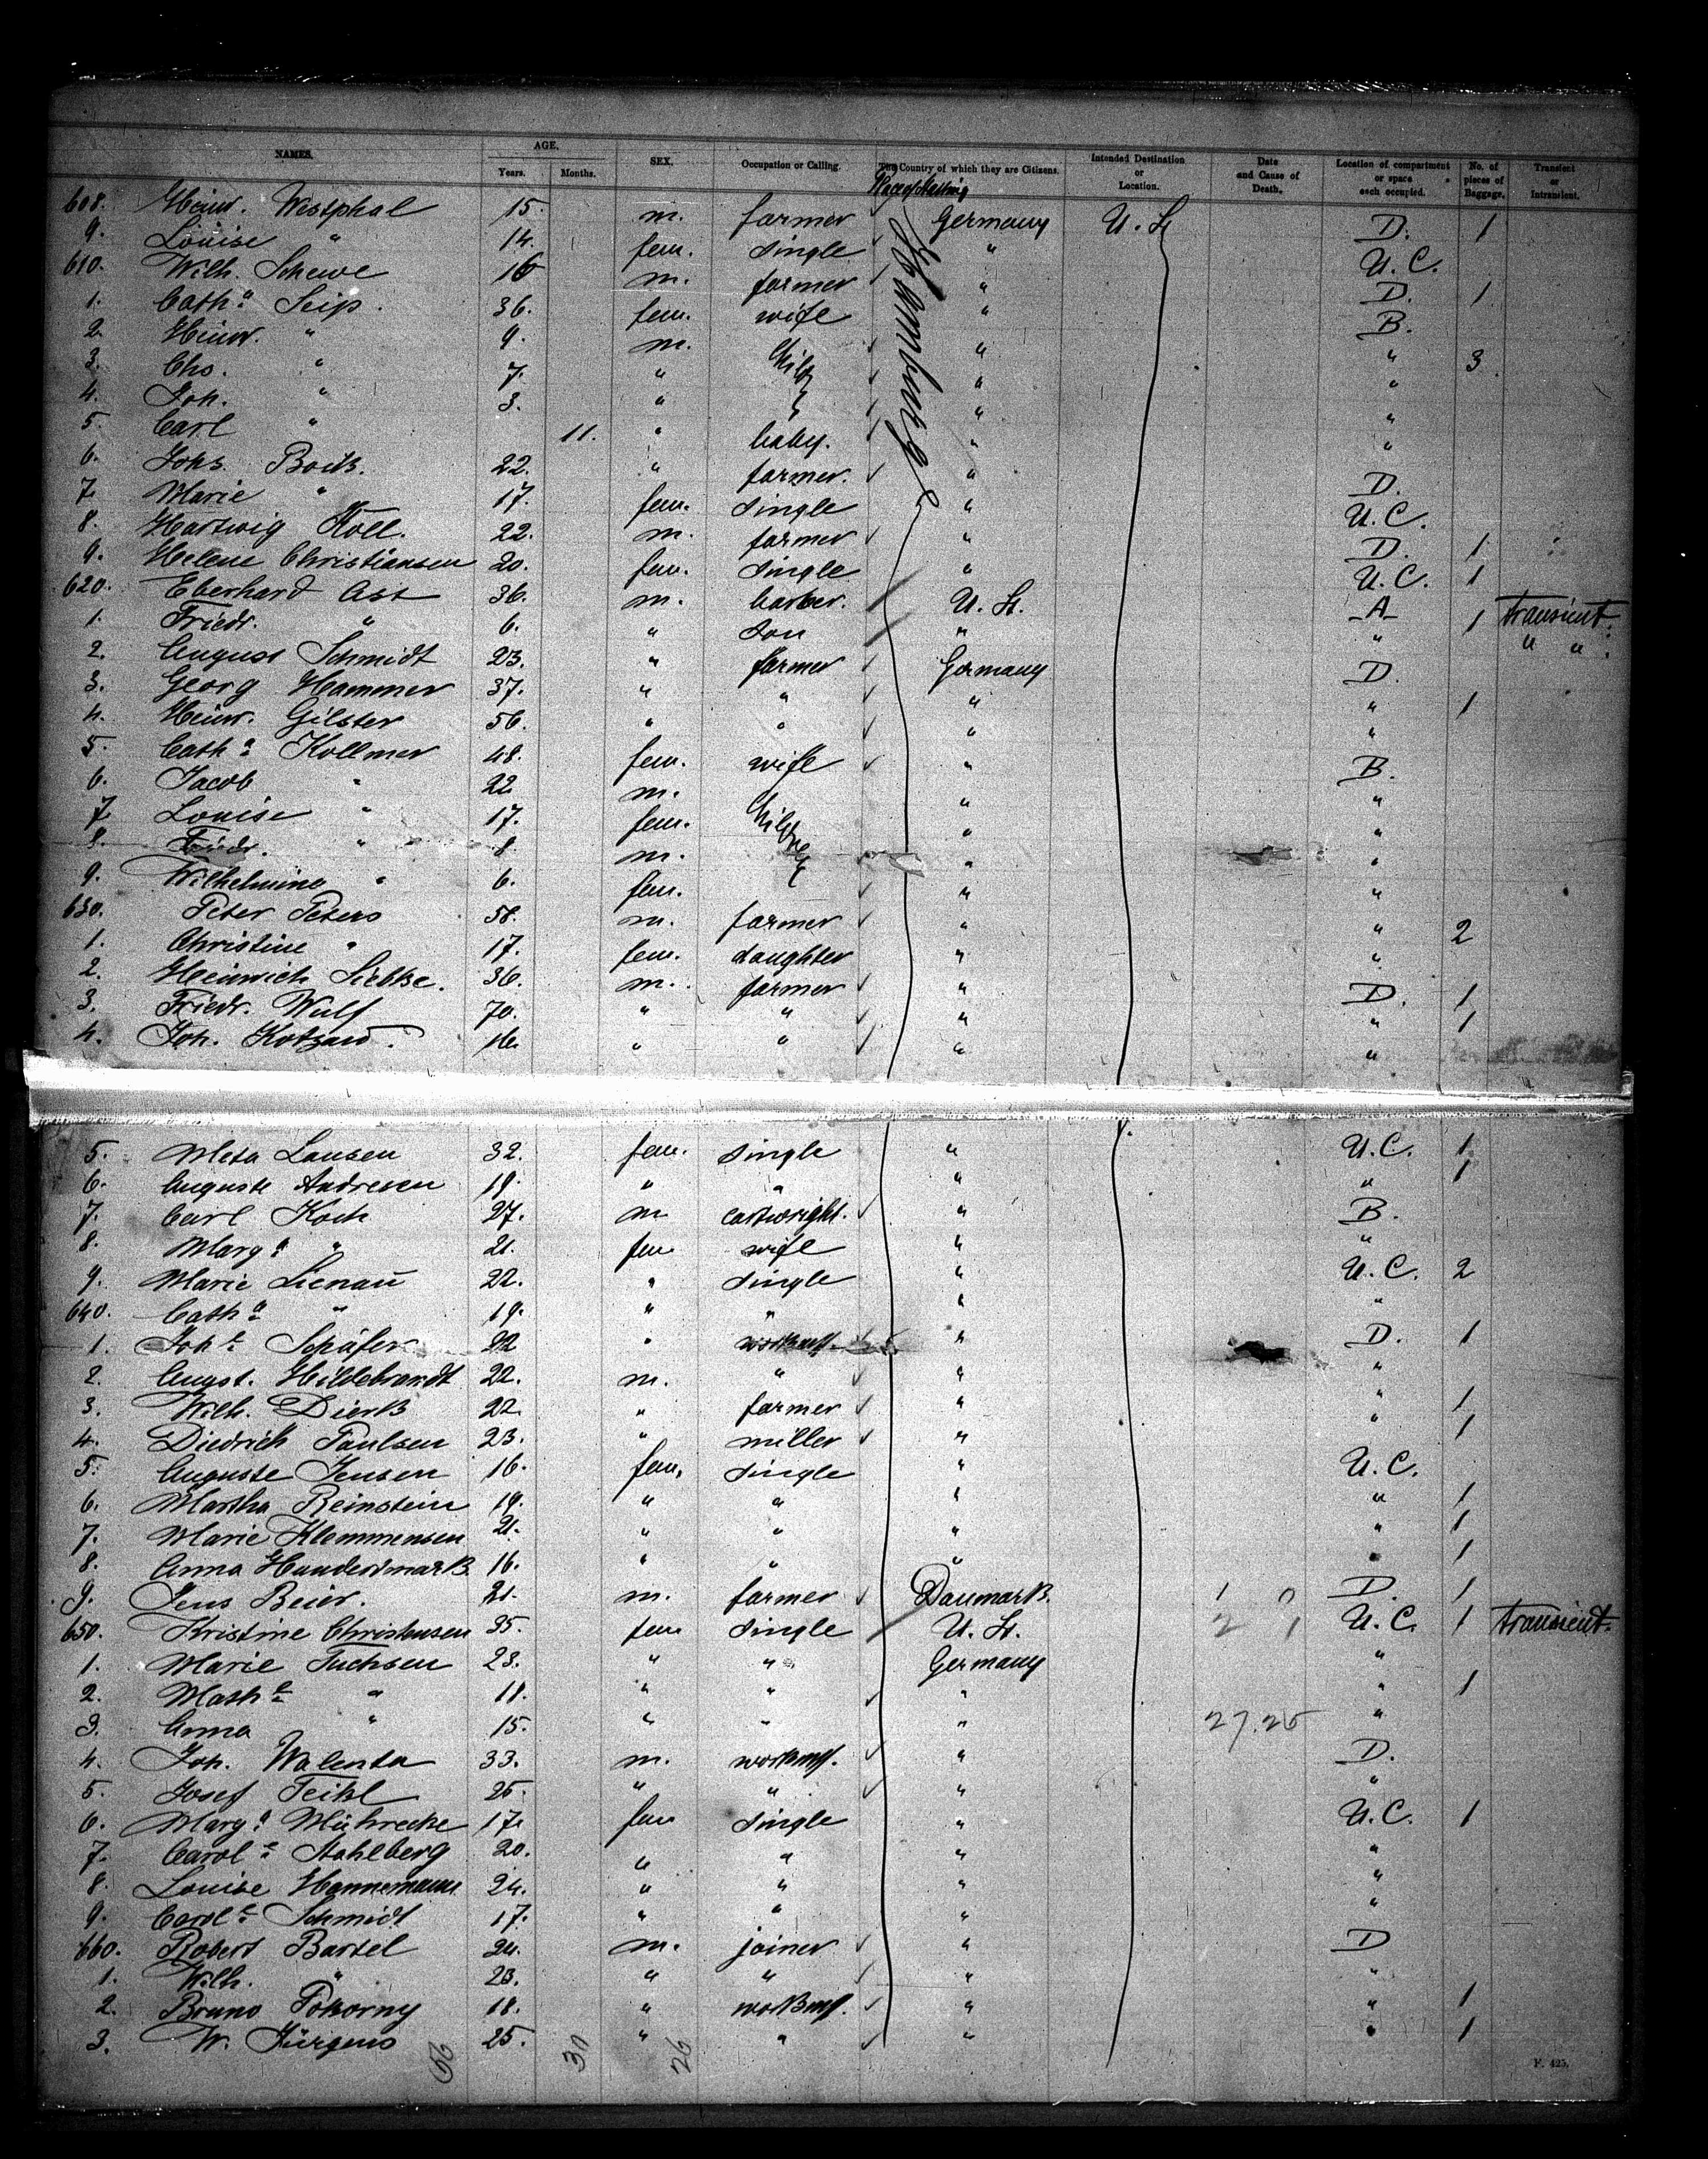 NAMES. AGE. Years. Months. SEX. Occupation or Calling. The Country of which they are Citizens. Intended Destination or Location. Date and Cause of Death. Location of compartment or space each occupied. No. of pieces of Baggage. Transient or Intransient.
Hamburg
608. Heinr. Westphal 15. m. farmer Germany U. St. D. 1
9. Louise " 14. fem. single " U.C.
610. Wilh. Schewe 16 m. farmer " D. 1
1. Cath.a Seip. 36. fem. wife " B.
2. Heinr. " 9. m. " " 3
3. Chs. " 7. " " "
4. Joh. " 3. " " "
5. Carl " 11. " baby. " "
6. Johs. 22. " farmer. " D.
7. Marie " 17. fem. single " U.C.
8. Hartwig Koll. 22. m. farmer " D. 1
9. Helene Christiansen 20. fem. single " U.C. 1
620. Eberhard Ast 36. m. barber. U. St. A 1 transient.
1. Friedr. " 6. " son " " " "
2. August Schmidt 23. " farmer Germany D.
3. Georg Hammer 37. " " " " 1
4. Heinr. Gilster 56. " " " "
5. Cath.a Kollmer 48. fem. wife " B.
6. Jacob " 22 m. " "
7. Louise " 17. fem. " "
8. Friedr. " 8. m. " "
9. Wilhelmine " 6. fem. " "
630. Peter Peters 58. m. farmer " " 2
1. Christine " 17. fem. daughter " "
2. Heinrich 36. m. farmer " D. 1
3. Friedr. Wulf 70. " " " " 1
4. Joh. 16. " " " "
5. Meta 32. fem. single " U.C. 1
6. Auguste Andresen 19. " " " " 1
7. Carl Koch 27. m cartwright. " B.
8. Marg.a " 21. fem wife " "
9. Marie Lienau 22. " single " U.C. 2
640. Cath.a " 19. " " " "
1. Joh.e Schäfer 22 " " D. 1
2. August. Hildebrandt 22. m. " " "
3. Wilh. Dierk 22. " farmer " " 1
4. Diedrich Paulsen 23. " miller " " 1
5. Auguste Jensen 16. fem. single " U.C.
6. Martha Reinstein 19. " " " " 1
7. Marie Klemmensen 21. " " " " 1
8. Anna Hundertmark 16. " " " " 1
9. Jens Beier. 21. m. farmer Danmark. D. 1
650. Kristine Christensen 35. fem single U. St. U.C. 1 transient.
1. Marie Tuchsen 23. " " Germany "
2. Math.e " 18. " " " " 1
3. Anna " 15. " " " 27.25 "
4. Joh. Walenta 33. m. " D.
5. Josef Teikl 25. " " " "
6. Marg.a 17. fem single " U.C. 1
7. Carol.e Stahlberg 20. " " " "
8. Louise Hannemann 24. " " " "
9. Carol.e Schmidt 17. " " " "
660. Robert Bartel 24. m. joiner " D
1. Wilh. " 23. " " " "
2. Bruno Pokorny 18. " " " 1
3. W. Jürgens 25. " " " " 1
56 30 26
F. 425.